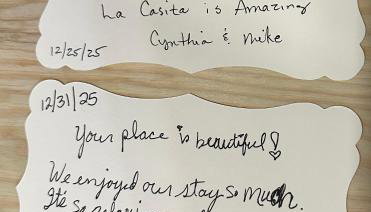 La Casita is Amazing
Cynthia & Mike
12/25/25
12/31/25
Your place is beautiful!
We enjoyed our stay so much.
It's so